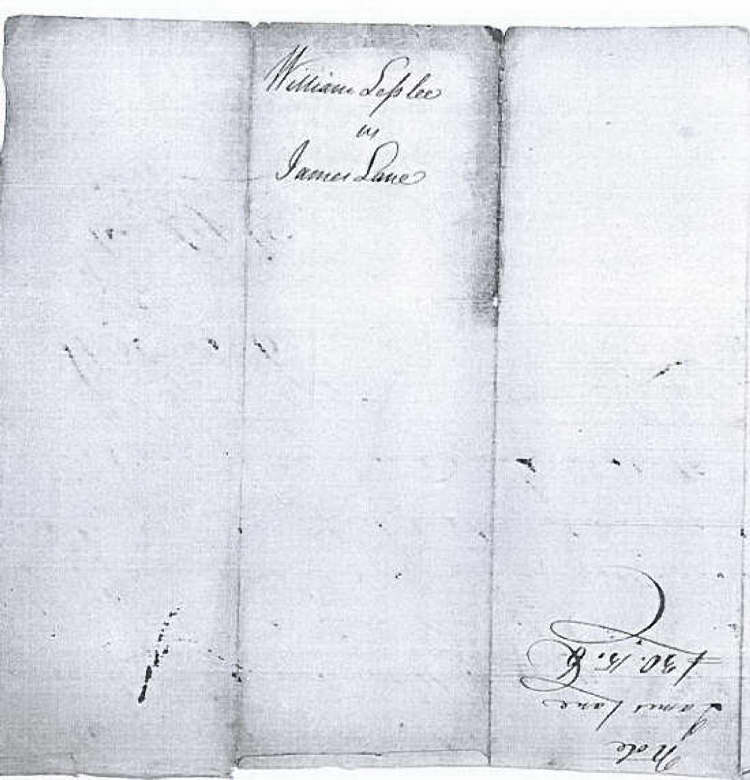 William Leſslee
vs
James Lane
Note
James Lane
£30.15.8